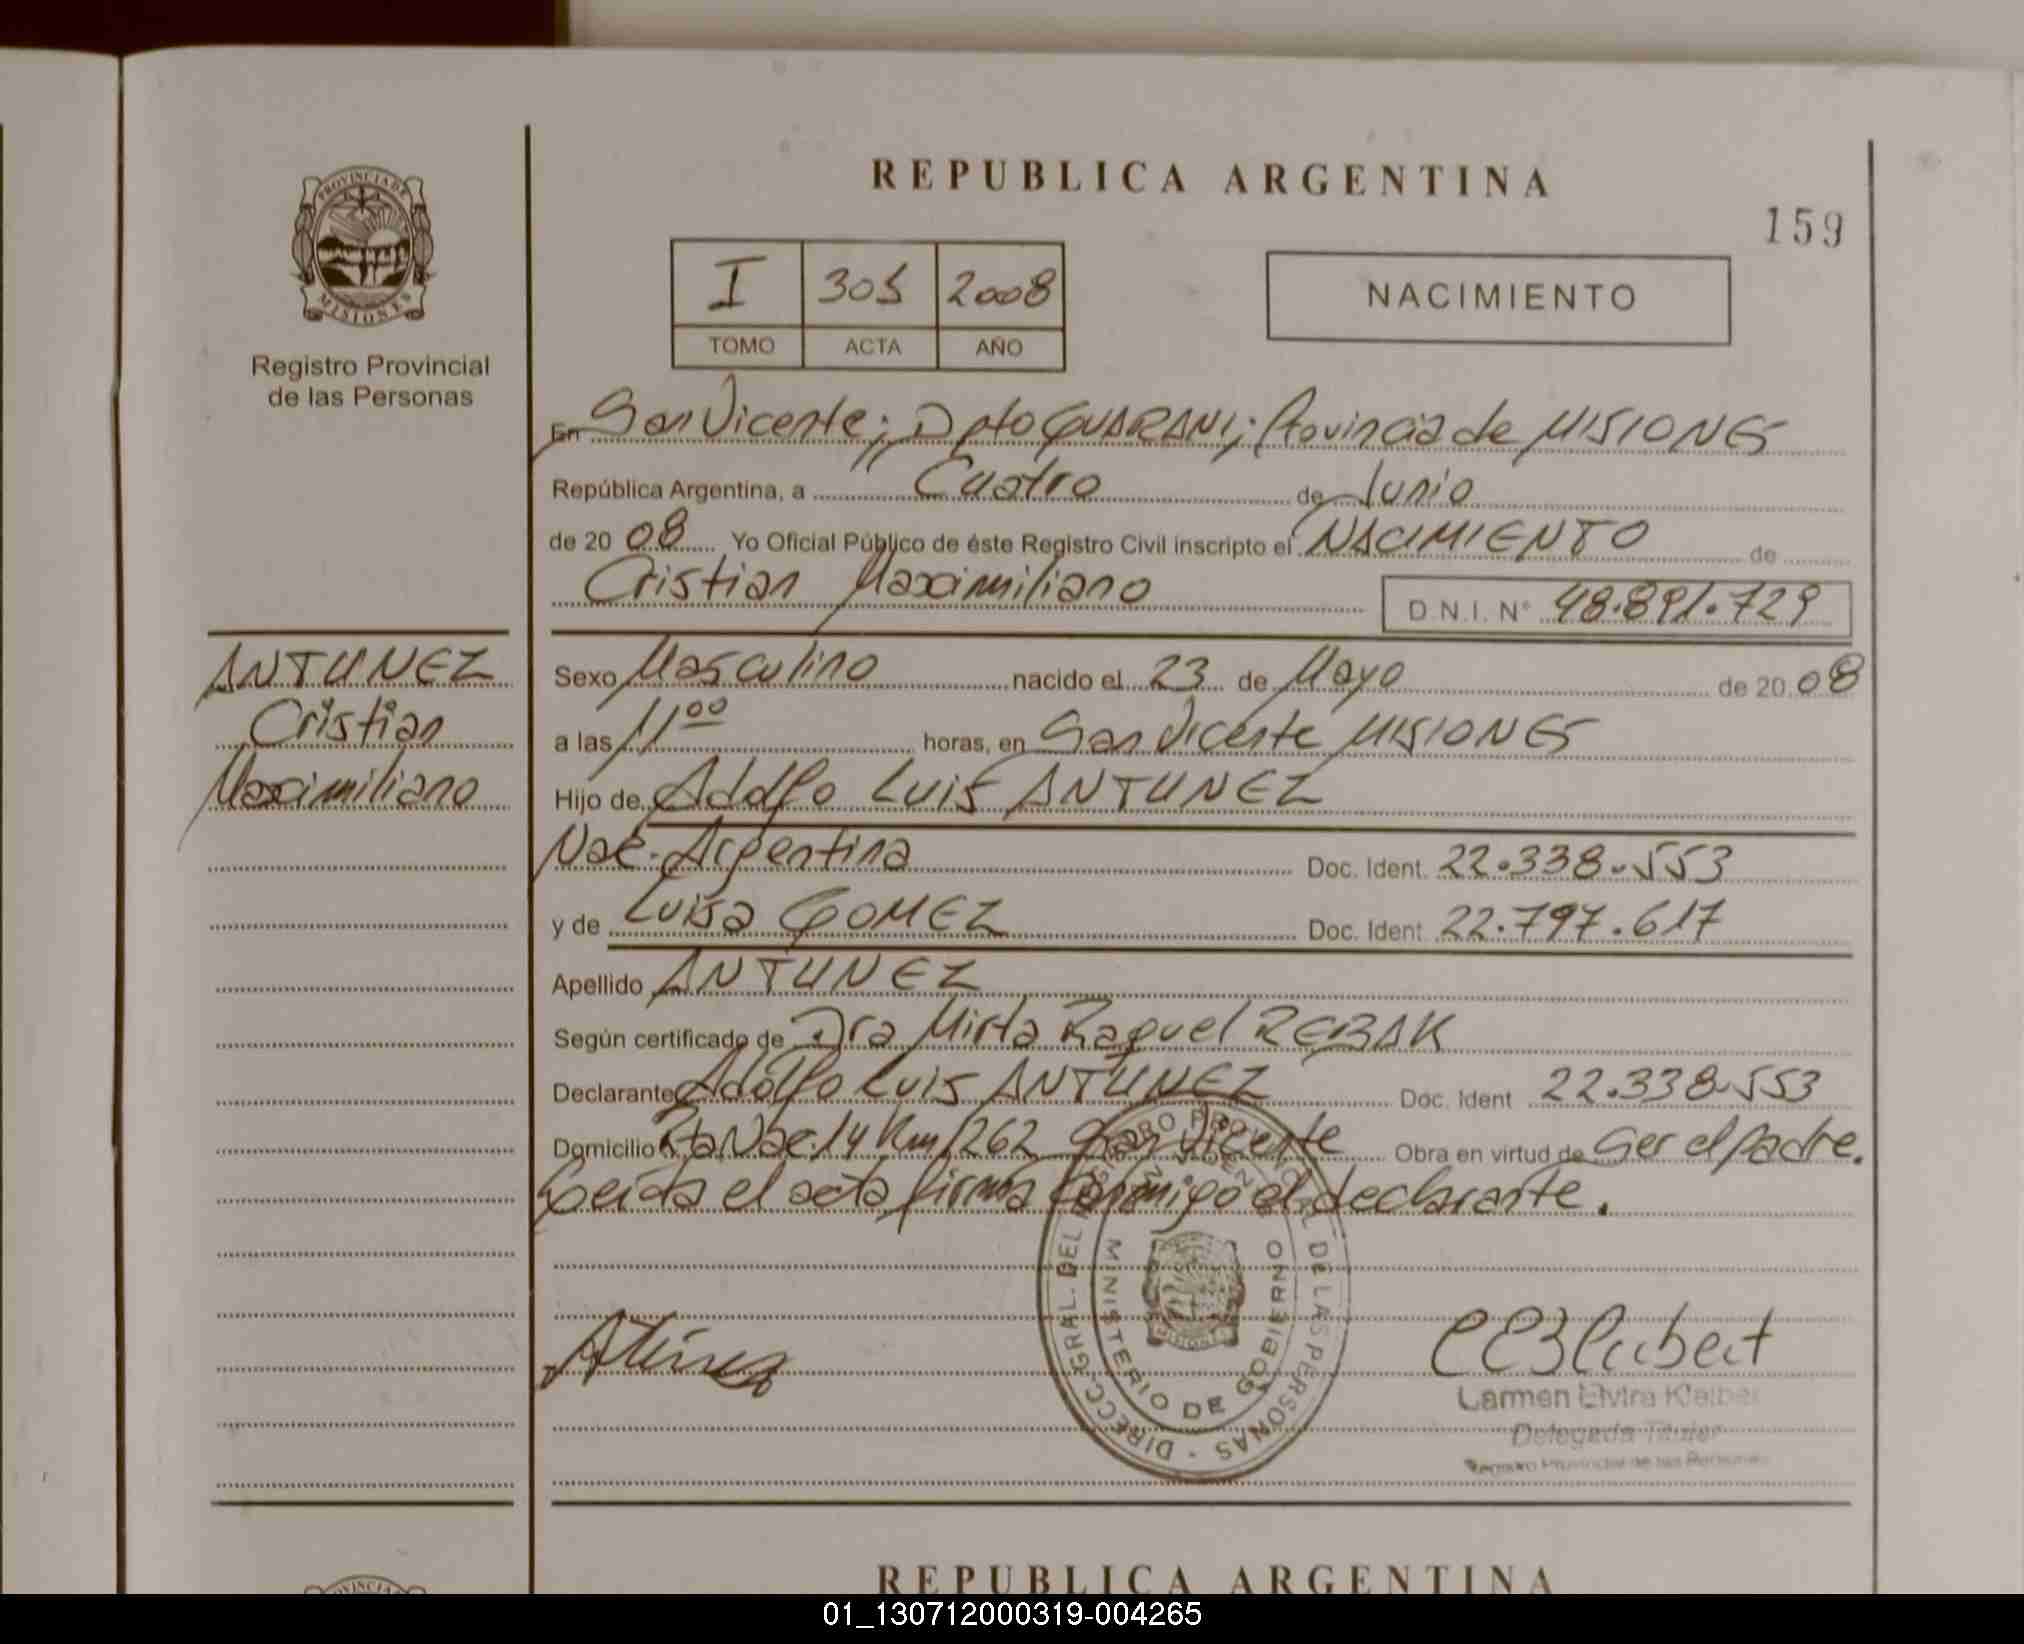 REPUBLICA ARGENTINA
159
PROVINCIA DE
MISIONES
Registro Provincial
de las Personas
I 305 2008
TOMO ACTA AÑO
NACIMIENTO
En San Vicente; Dpto GUARANI; Provincia de MISIONES
República Argentina, a Cuatro de Junio
de 20 08 Yo Oficial Público de éste Registro Civil inscripto el NACIMIENTO de
Cristian Maximiliano D.N.I. N° 48.891.729
ANTUNEZ
Cristian
Maximiliano
Sexo Masculino nacido el 23 de Mayo de 20 08
a las 11 00 horas, en San Vicente MISIONES
Hijo de Adolfo Luis ANTUNEZ
Nac. Argentina Doc. Ident. 22.338.553
y de Luisa GOMEZ Doc. Ident. 22.797.617
Apellido ANTUNEZ
Según certificado de Dra Mirta Raquel REBAK
Declarante Adolfo Luis ANTUNEZ Doc. Ident 22.338.553
Domicilio Rta Nac. 14 Km 1262 San Vicente Obra en virtud de Ser el padre.
Leida el acta firma conmigo el declarante.
DIRECC. GRAL. DEL REGISTRO PROVINCIAL DE LAS PERSONAS
MINISTERIO DE GOBIERNO
Carmen Elvira
Delegada Titular
Registro Provincial de las Personas
REPUBLICA ARGENTINA
01_130712000319-004265